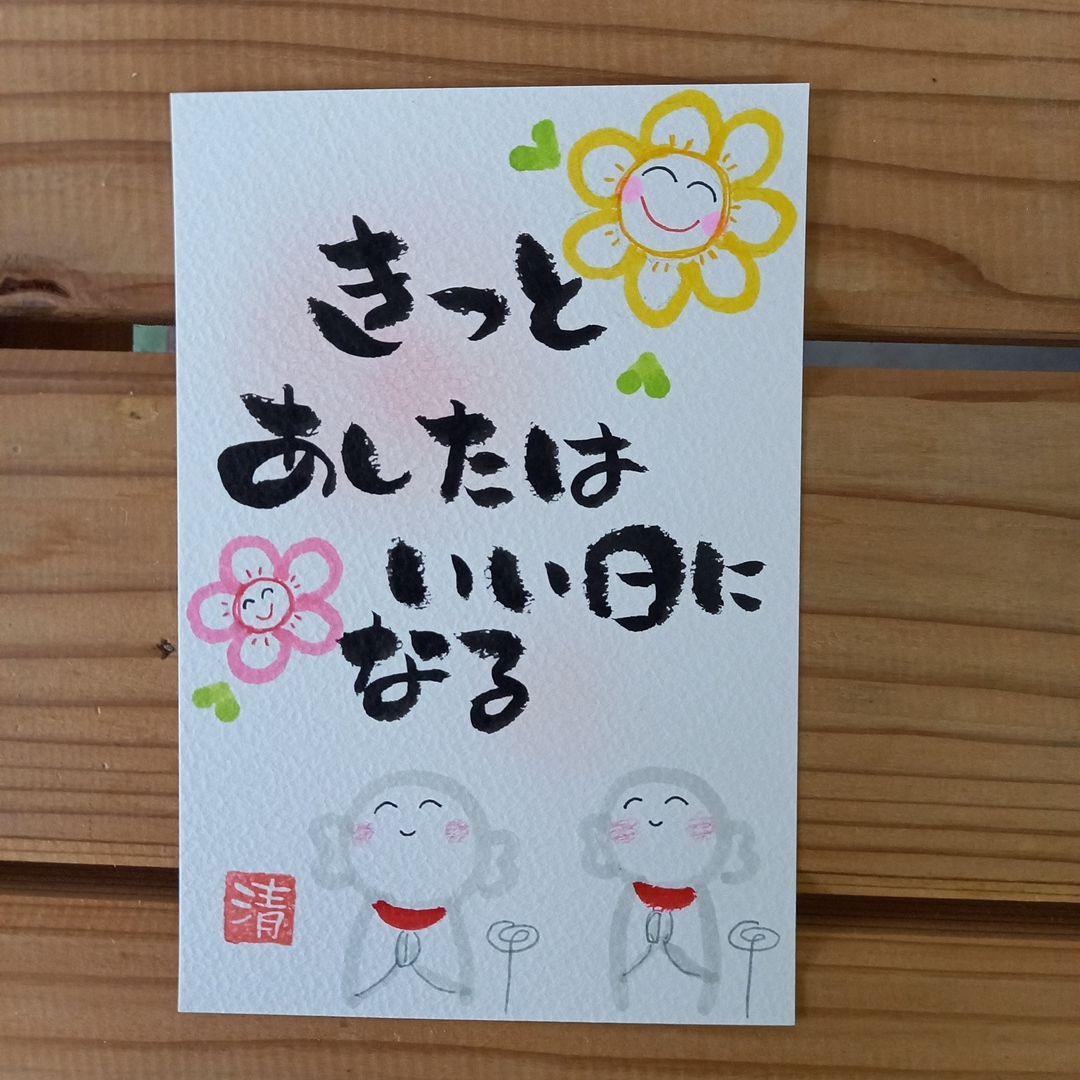 きっと
あしたは
いい日に
なる
清